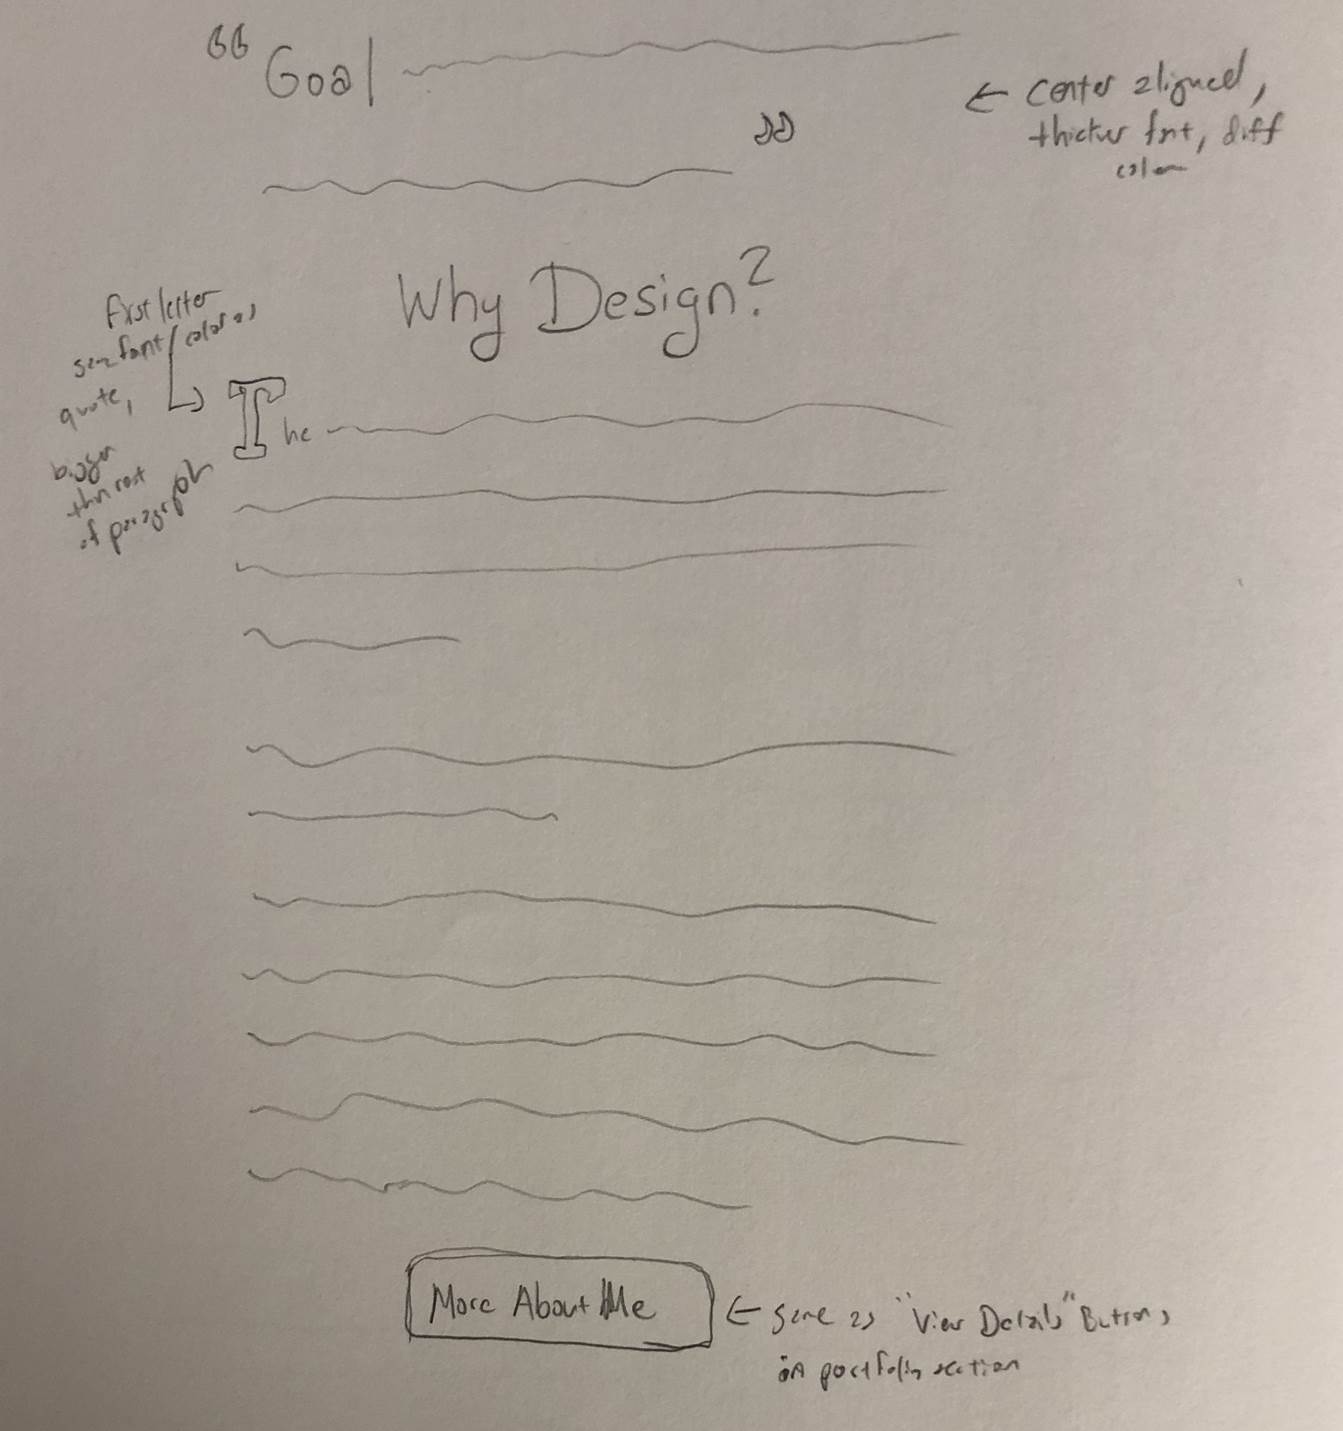 “ Goal
”
← center aligned,
thicker font, diff
color
Why Design?
first letter
same font/color as
quote,
bigger
than rest
of paragraph
The
More About Me
← same as "View Details" Buttons
in portfolio section